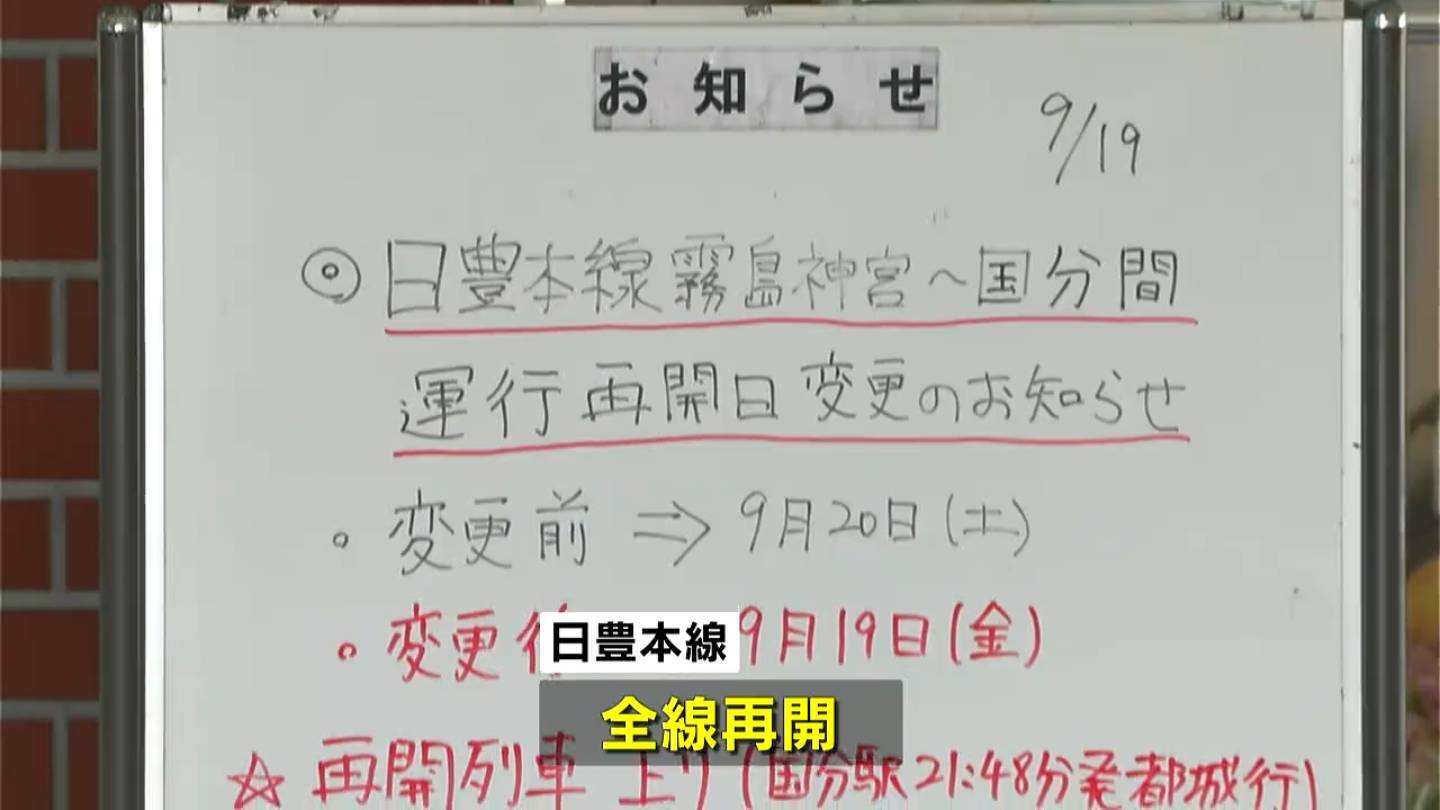 お知らせ
9/19
◎日豊本線霧島神宮~国分間
運行再開日変更のお知らせ
。変更前 ⇒ 9月20日(土)
。変更後 9月19日(金)
日豊本線
全線再開
☆再開列車 上り(国分駅21:48分発都城行)